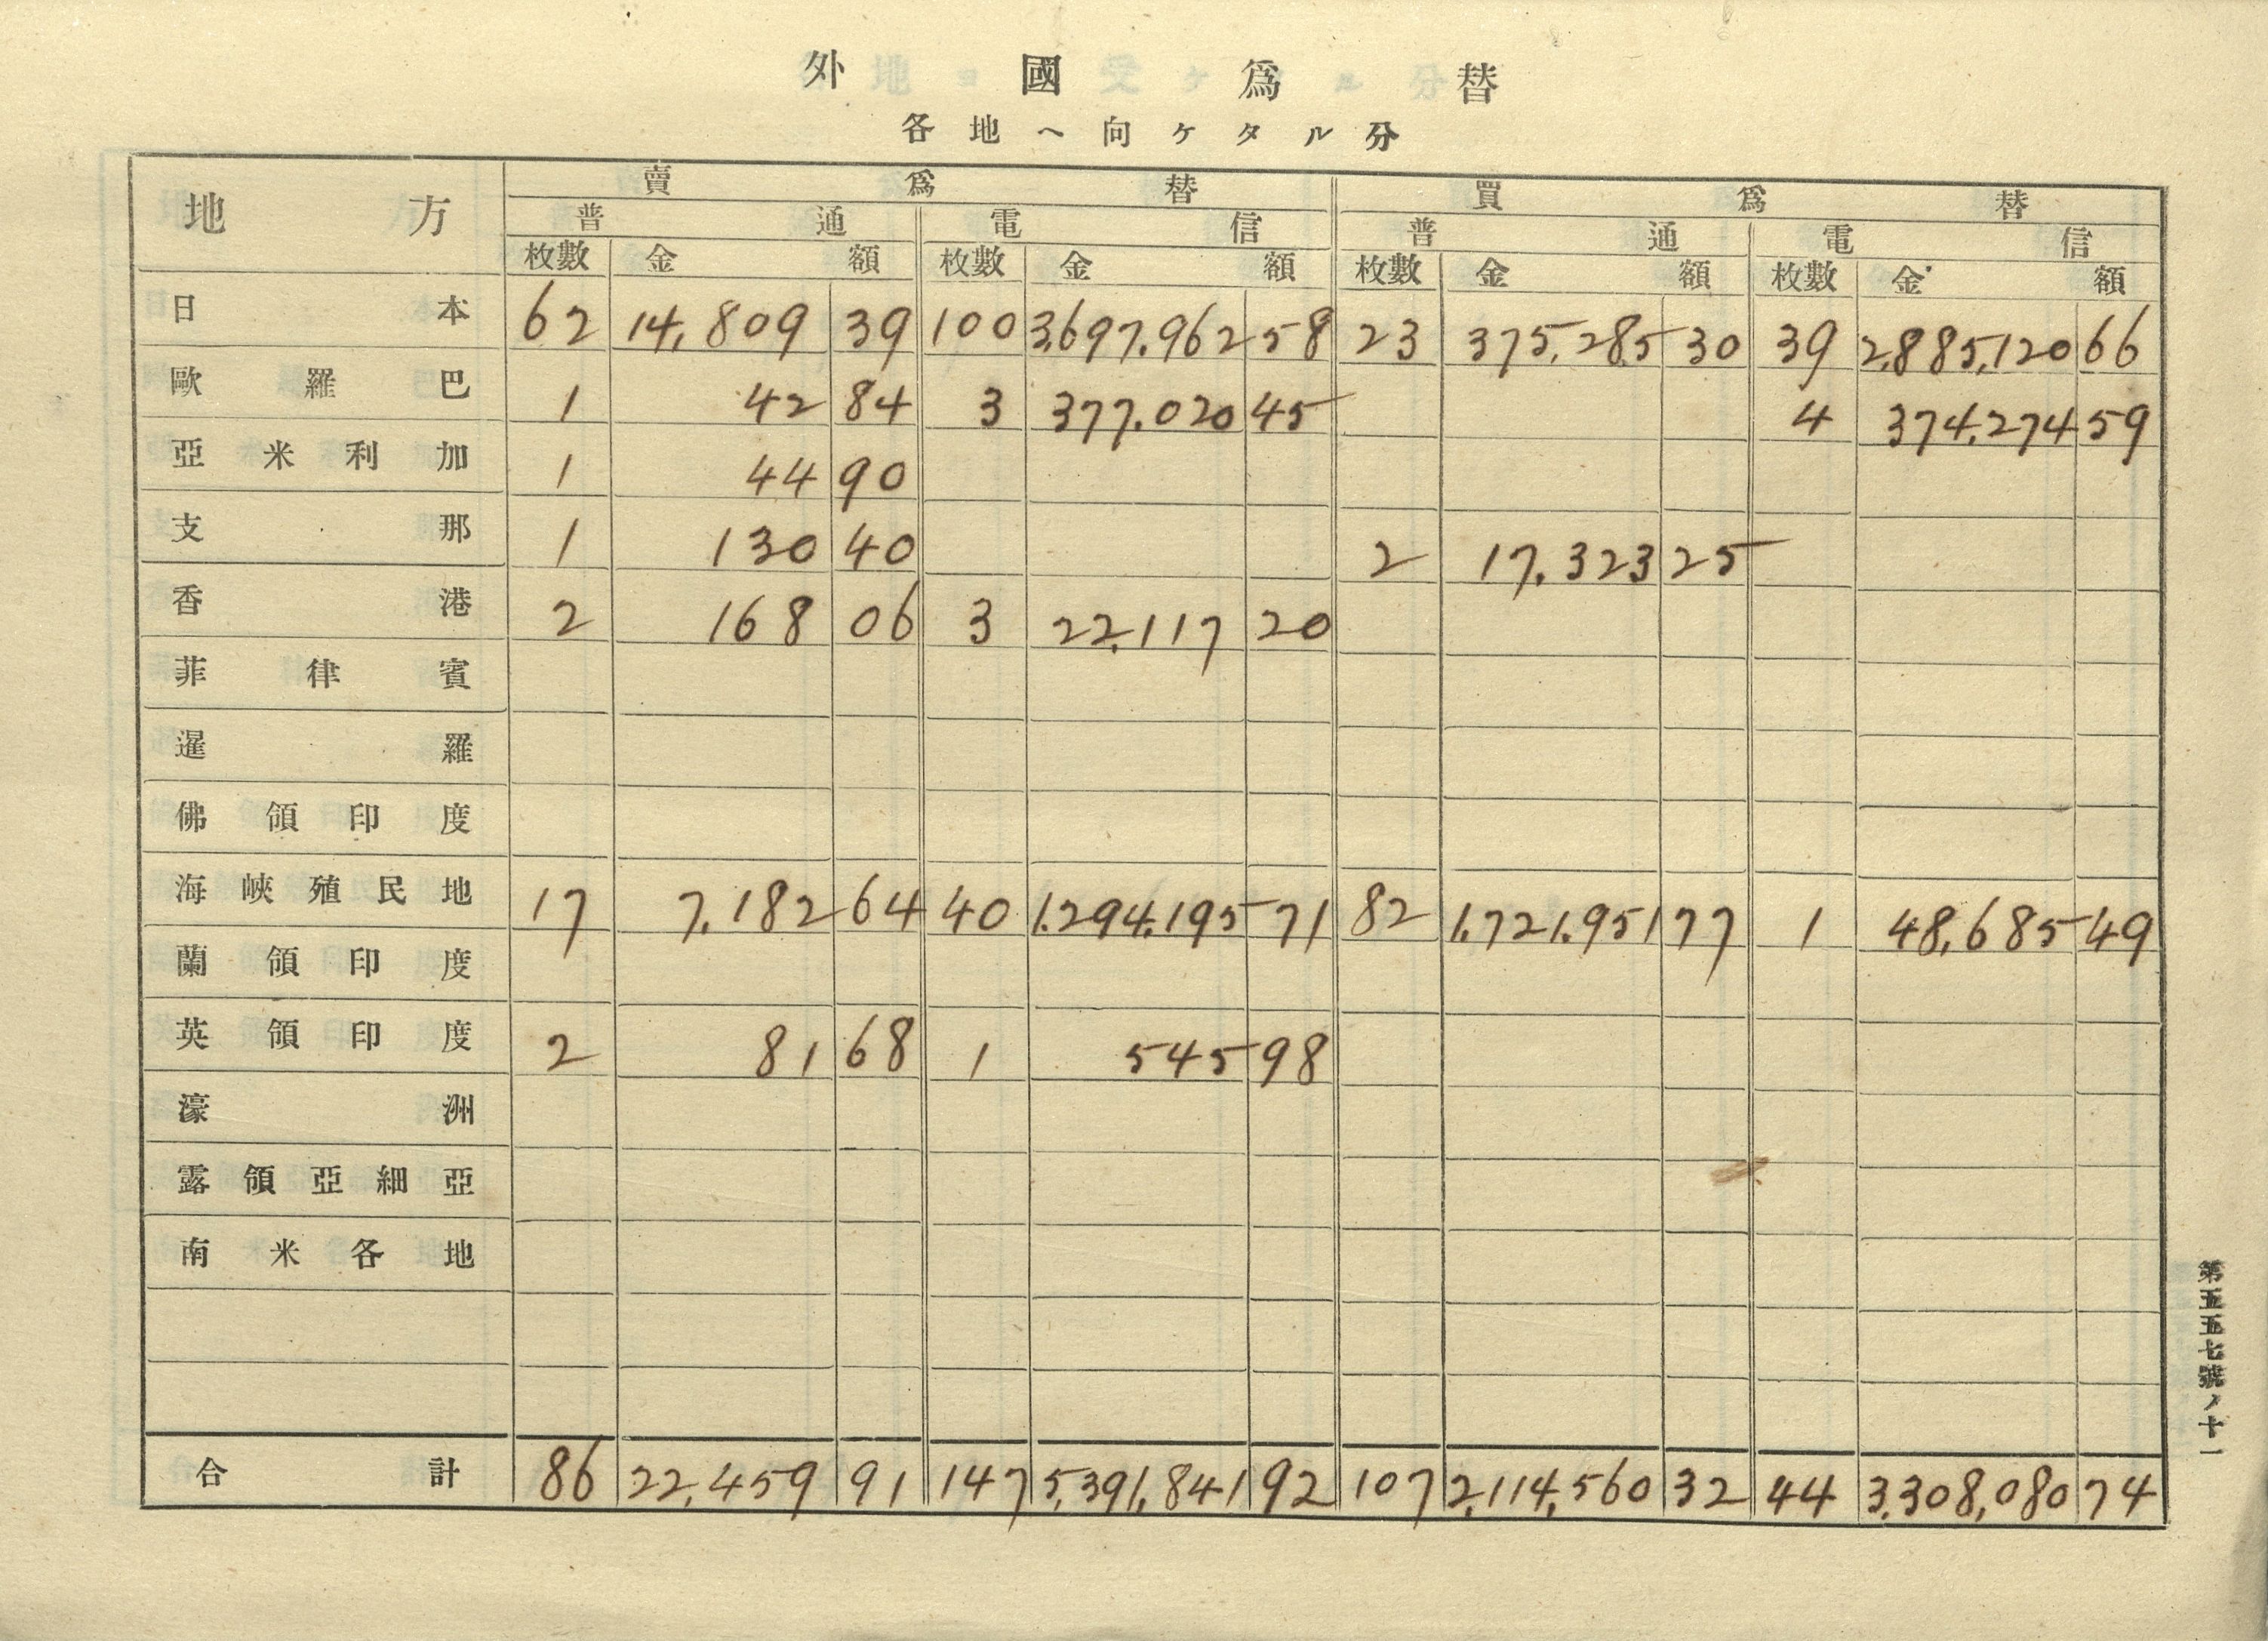 外國爲替
各地へ向ケタル分
地方 賣爲替 買爲替
普通 電信 普通 電信
枚數 金額 枚數 金額 枚數 金額 枚數 金額
日本 62 14,809 39 100 3,697,962 58 23 375,285 30 39 2,885,120 66
歐羅巴 1 42 84 3 377,020 45 4 374,274 59
亞米利加 1 44 90
支那 1 130 40 2 17,323 25
香港 2 168 06 3 22,117 20
菲律賓
暹羅
佛領印度
海峽殖民地 17 7,182 64 40 1,294,195 71 82 1,721,951 77 1 48,685 49
蘭領印度
英領印度 2 81 68 1 545 98
濠洲
露領亞細亞
南米各地
合計 86 22,459 91 147 5,391,841 92 107 2,114,560 32 44 3,308,080 74
第五五七號ノ十一